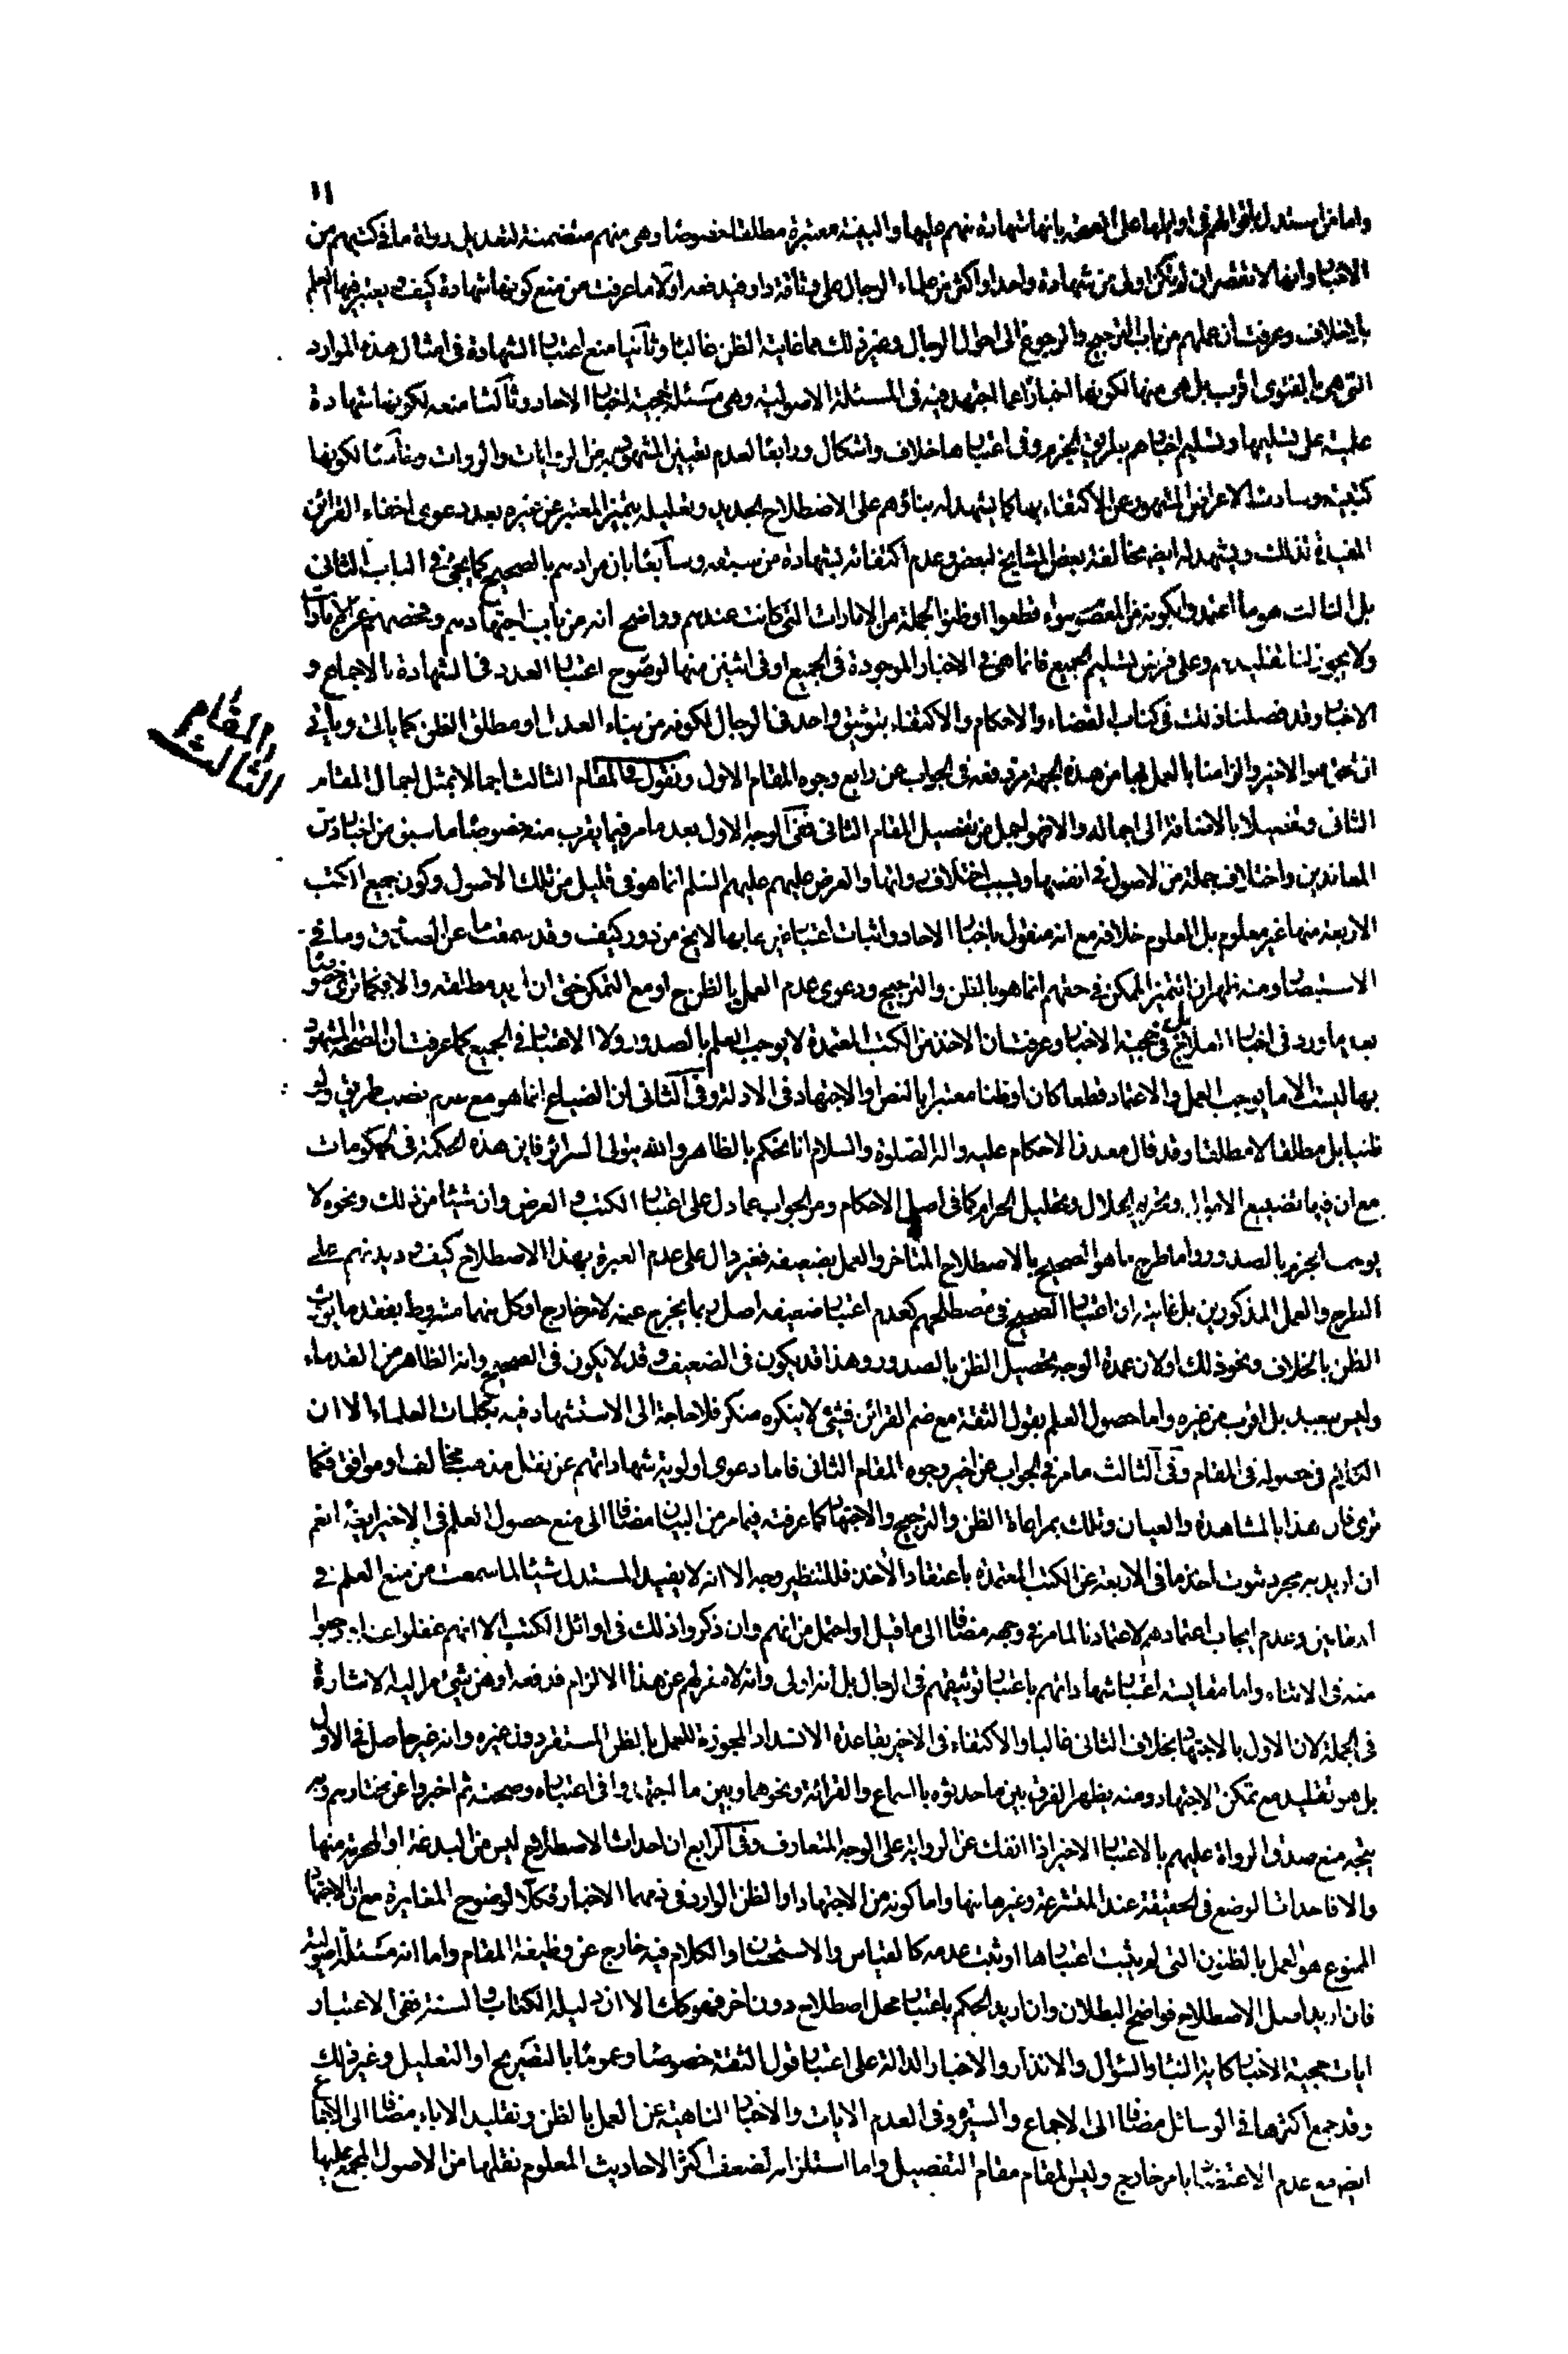 ١١
واما من استدل باقوالهم في اوايلها على البعض بانها شهادة منهم عليها والبينة معتبرة مطلقا خصوصا وهي منهم متضمنة لتعديل رواة ما في كتبهم من
الاخبار وانها لا تقصر ان لم تكن اولى من شهادة واحد او اكثر من علماء الرجال على وثاقة راو فيدفعه اولا ما عرفت من منع كونها شهادة كيف ويعتبر فيها العلم
بالاخلاف وعرفت ان عملهم من باب الترجيح والرجوع الى احوال الرجال وغير ذلك مما غايته الظن غالبا وثانيا منع اعتبار الشهادة في امثال هذه الموارد
التي هي بالفتوى اقرب بل هي منها لكونها اخبارا عما اجتهد فيه في المسئلة الاصولية وهي مسئلة حجية اخبار الاحاد وثالثا منعه لكونها شهادة
علمية على تسليمها وتسليم اخبارهم بطريق الجزم وفي اعتبارها خلاف واشكال ورابعا لعدم تعيين المشهود به من الروايات والروات وخامسا لكونها
كتبية وسادسا لاعراض المشهور عن الاكتفاء بها كما يشهد له بناؤهم على الاصطلاح الجديد وتعليله بتميز المعتبر عن غيره بعد دعوى اختفاء القرائن
المفيدة لذلك ويشهد له ايض مخالفة بعض المشايخ لبعض وعدم اكتفائه بشهادة من سبقه وسابعا بان مرادهم بالصحيح كما يجئ في الباب الثاني
بل الثالث هو ما اعتمدوا بكونه من المعصوم سواء قطعوا او ظنوا لجملة من الامارات التي كانت عندهم وواضح انه من باب اجتهادهم وفحصهم عن الامارات
ولا يجوز لنا تقليدهم وعلى فرض تسليم الجميع فانما هي في الاخبار الموجودة في الجميع او في اثنين منها لوضوح اعتبار العدد في الشهادة بالاجماع و
الاخبار وقد فصلنا ذلك في كتاب القضاء والاحكام والاكتفاء بتوثيق واحد في الرجال لكونه من بناء العدل او مطلق الظن كما يأتي ويأتي
ان حق هو الاخير والزامنا بالعمل بها من هذه الجهة مر دفعه في الجواب عن رابع وجوه المقام الاول ونقول في المقام الثالث اجمالا بمثل اجمال المقام
المقام الثالث
الثاني وتفصيلا بالاضافة الى اجماله والا فهو اجمل من تفصيل المقام الثاني ففي الوجه الاول بعد ما مر فيما يقرب منه خصوصا ما سبق من اخبار دس
المعاندين واختلاف جملة من الاصول في انفسها وبسبب اختلاف رواتها والعرض عليهم عليهم السلم انما هو في قليل من تلك الاصول وكون جميع الكتب
الاربعة منها غير معلوم بل المعلوم خلافه مع انه منقول باخبار الاحاد واثبات اعتبار غيرها بها لا يخ من دور كيف وقد سمعت ما عن الصادق وما في
الاستبصار ومنه ظهر ان التميز الممكن في حقهم انما هو بالظن والترجيح ودعوى عدم العمل بالظن ح او مع التمكن حق ان اريد مطلقه والا فكما ترى خصوصا
بعد ما ورد في اخبار العلاج بل في حجية الاخبار وعرفت ان الاخذ من الكتب المعتمدة لا يوجب العلم بالصدور ولا الاعتبار في الجميع كما عرفت ان الصحة المشهود
بها ليست الا ما يوجب العمل والاعتماد قطعا كان او ظنا معتبرا بالنص او الاجتهاد في الادلة وفي الثاني ان الضياع انما هو مع عدم نصب طريق ولو
ظنيا بل مطلقا لا مطلقا وقد قال معدن الاحكام عليه واله الصلوة والسلام انا نحكم بالظاهر والله يتولى السرائر فاين هذه الحكمة في الحكومات
مع ان فيها تضييع الاموال وتحريم الحلال وتحليل الحرام كما في اصل الاحكام ومر الجواب عما دل على اعتبار الكتب والعرض وان شيئا من ذلك ونحوه لا
يوجب الجزم بالصدور واما طرح ما هو الصحيح بالاصطلاح المتاخر والعمل بضعيفه فغير دال على عدم العبرة بهذا الاصطلاح كيف وديدنهم على
الطرح والعمل المذكورين بل غايته ان اعتبار الصحيح في مصطلحهم كعدم اعتبار ضعيفه اصل ربما يخرج عنه لامر خارج او كل منهما مشروط بفقد ما يورث
الظن بالخلاف ونحو ذلك اولان عمدة الوجه تحصيل الظن بالصدور وهذا قد يكون في الضعيف وقد لا يكون في الصحيح وانه الظاهر من القدماء
وليس ببعيد بل اقرب من غيره واما حصول العلم بقول الثقة مع ضم القرائن فشئ لا ينكره منكر فلا حاجة الى الاستشهاد فيه بكلمات العلماء الا ان
الكلام في حصوله في المقام وفي الثالث ما مر في الجواب عن اخير وجوه المقام الثاني فاما دعوى اولوية شهاداتهم عن نقل مذهب مخالف او موافق فكما
ترى فان هذا بالمشاهدة والعيان وتلك بمراعاة الظن والترجيح والاجتهاد كما عرفته فيما مر من البيان مضافا الى منع حصول العلم في الاخير ايضا نعم
ان اريد به مجرد ثبوت اخذ ما في الاربعة عن الكتب المعتمدة باعتقاد الاخذ فللتنظير وجه الا انه لا يفيد المستدل شيئا لما سمعت من منع العلم في
المقامين وعدم ايجاب اعتمادهم لاعتمادنا لما مر في وجهه مضافا الى ما قيل او احتمل من انهم وان ذكروا ذلك في اوائل الكتب الا انهم غفلوا عنه او رجعوا
منه في الاثناء واما مقايسة اعتبار شهاداتهم باعتبار توثيقهم في الرجال بل انه اولى وانه لا مفر لهم عن هذا الالزام فدفعه اوهن شئ مر اليه الاشارة
في الجملة لان الاول بالاجتهاد بخلاف الثاني غالبا والاكتفاء في الاخير بقاعدة الانسداد المجوزة للعمل بالظن المستقر دون غيره وانه غير حاصل في الاول
بل هو تقليد مع تمكن الاجتهاد ومنه يظهر الفرق بين ما حدثوه بالسماع والقرائة ونحوهما وبين ما اجتهدوا في اعتباره وصحته ثم اخبروا عن مختارهم وبه
يتجه منع صدق الرواة عليهم بالاعتبار الاخير اذا انفك عن الرواية على الوجه المتعارف وفي الرابع ان احداث الاصطلاح ليس من البدعة او المحرمة منها
والا فاحداث الوضع في الحقيقة عند المتشرعة وغيرها منها واما كونه من الاجتهاد او الظن الوارد في ذمهما الاخبار فكلا لوضوح المغايرة مع ان الاجتهاد
الممنوع هو العمل بالظنون التي لم يثبت اعتبارها او ثبت عدمه كالقياس والاستحسان والكلام فيه خارج عن وظيفة المقام واما انه مسئلة اصولية
فان اريد اصل الاصطلاح فواضح البطلان وان اريد الحكم باعتبار محل اصطلاح دون اخر فهو كك الا ان دليله الكتاب والسنة ففي الاعتبار
ايات حجية الاخبار كاية النبأ والسؤال والانذار والاخبار الدالة على اعتبار قول الثقة خصوصا وعموما بالتصريح او التعليل وغير ذلك
وقد جمع اكثرها في الوسائل مضافا الى الاجماع والسيرة وفي العدم الايات والاخبار الناهية عن العمل بالظن وتقليد الاباء مضافا الى الاجماع
ايض مع عدم الاعتضاد بامر خارج وليس المقام مقام التفصيل واما استلزامه لضعف اكثر الاحاديث المعلوم نقلها من الاصول المجمع عليها